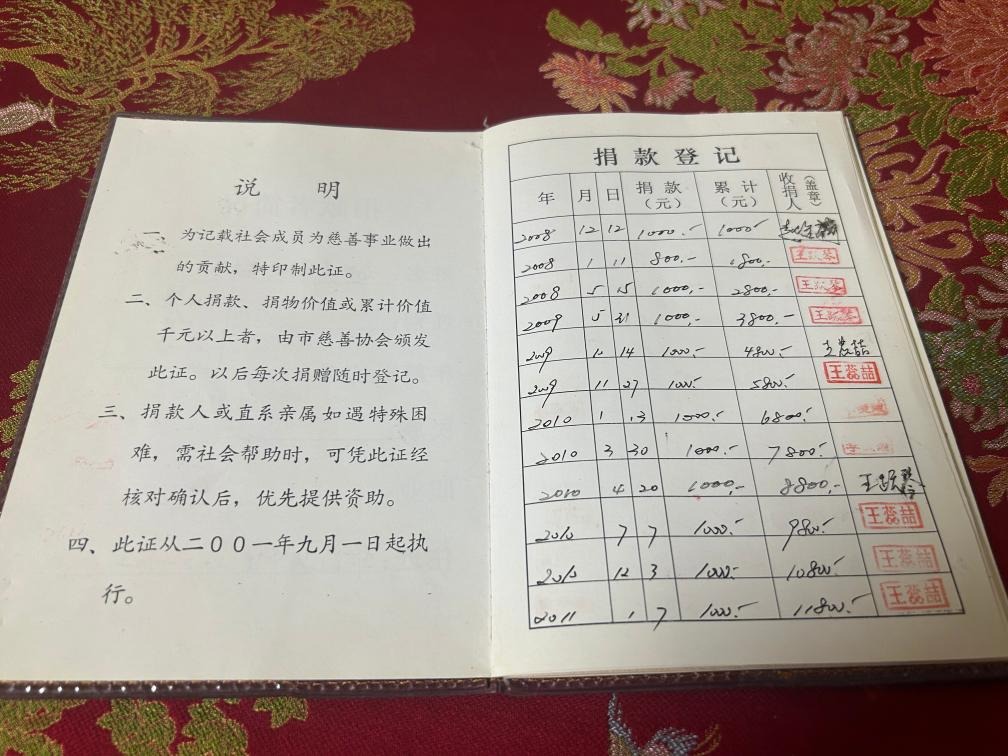 说 明
一、为记载社会成员为慈善事业做出
的贡献，特印制此证。
二、个人捐款、捐物价值或累计价值
千元以上者，由市慈善协会颁发
此证。以后每次捐赠随时登记。
三、捐款人或直系亲属如遇特殊困
难，需社会帮助时，可凭此证经
核对确认后，优先提供资助。
四、此证从二００一年九月一日起执
行。
捐款登记
年 月 日 捐款（元） 累计（元） 收捐人（盖章）
2008 12 12 1000.- 1000.-
2008 1 11 800.- 1800.-
2008 5 15 1000.- 2800.-
2009 5 31 1000.- 3800.-
2009 14 1000.- 4800.- 王蕊喆
2009 11 27 1000.- 5800.- 王蕊喆
2010 1 13 1000.- 6800.-
2010 3 30 1000.- 7800.-
2010 4 20 1000.- 8800.-
2010 7 7 1000.- 9800.- 王蕊喆
2010 12 3 1000.- 10800.- 王蕊喆
2011 1 7 1000.- 11800.- 王蕊喆